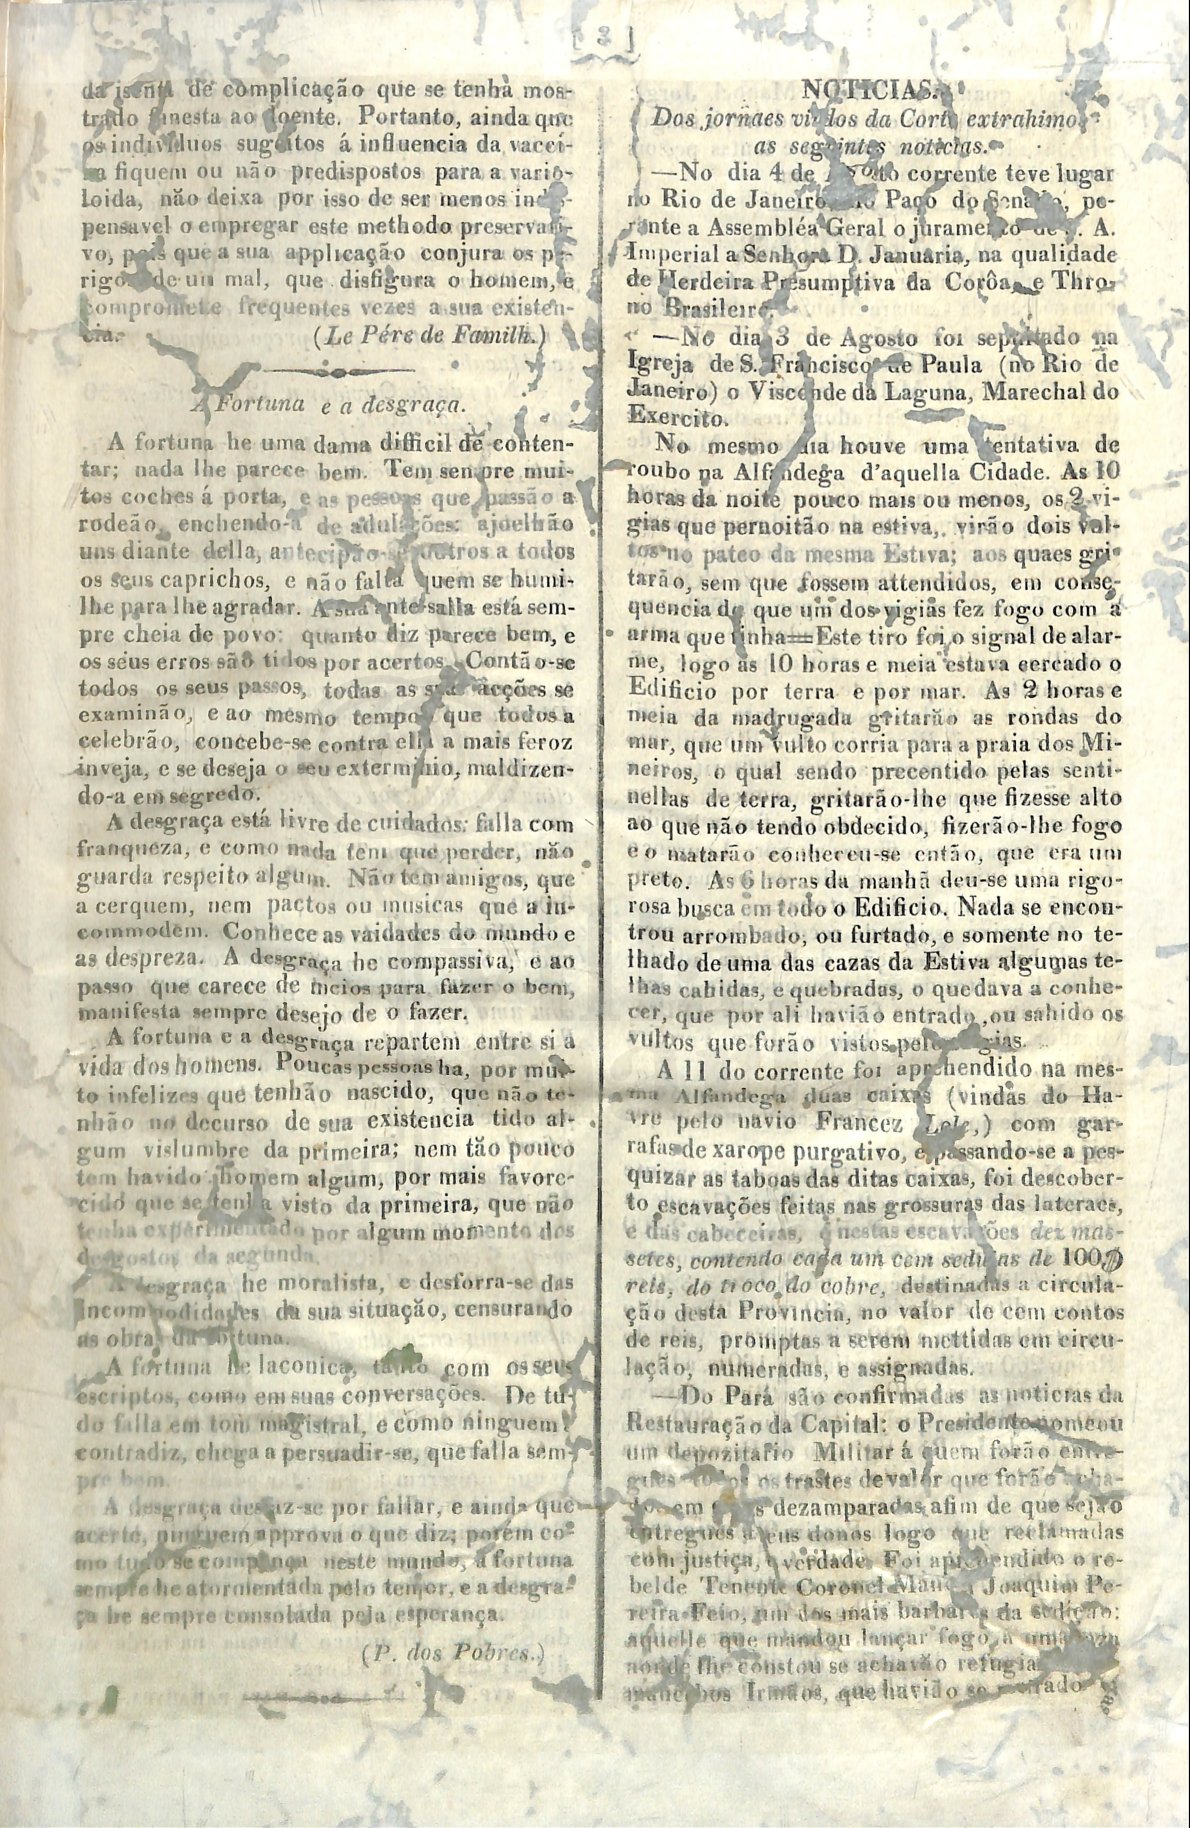 [ 3 ]
da isenta de complicação que se tenha mos-
trado funesta ao doente. Portanto, ainda que
os individuos sugeitos á influencia da vacci-
na fiquem ou não predispostos para a vario-
loida, não deixa por isso de ser menos indis-
pensavel o empregar este methodo preservati-
vo, pois que a sua applicação conjura os pe-
rigos de um mal, que disfigura o homem, e
compromete frequentes vezes a sua existen-
cia. (Le Pére de Famille.)
A Fortuna e a desgraça.
A fortuna he uma dama difficil de conten-
tar; nada lhe parece bem. Tem sempre mui-
tos coches á porta, e as pessoas que passão a
rodeão, enchendo-a de adulações: ajoelhão
uns diante della, antecipão-se outros a todos
os seus caprichos, e não falta quem se humi-
lhe para lhe agradar. A sua ante-salla está sem-
pre cheia de povo: quanto diz parece bem, e
os seus erros são tidos por acertos. Contão-se
todos os seus passos, todas as suas acções se
examinão, e ao mesmo tempo que todos a
celebrão, concebe-se contra ella a mais feroz
inveja, e se deseja o seu exterminio, maldizen-
do-a em segredo.
A desgraça está livre de cuidados: falla com
franqueza, e como nada tem que perder, não
guarda respeito algum. Não tem amigos, que
a cerquem, nem pactos ou musicas que a in-
commodem. Conhece as vaidades do mundo e
as despreza. A desgraça he compassiva, e ao
passo que carece de meios para fazer o bem,
manifesta sempre desejo de o fazer.
A fortuna e a desgraça repartem entre si a
vida dos homens. Poucas pessoas ha, por mui-
to infelizes que tenhão nascido, que não te-
nhão no decurso de sua existencia tido al-
gum vislumbre da primeira; nem tão pouco
tem havido homem algum, por mais favore-
cido que se tenha visto da primeira, que não
tenha experimentado por algum momento dos
desgostos da segunda.
A desgraça he moralista, e desforra-se das
incommodidades da sua situação, censurando
as obras da fortuna.
A fortuna he laconica, tanto com os seus
escriptos, como em suas conversações. De tu-
do falla em tom magistral, e como ninguem a
contradiz, chega a persuadir-se, que falla sem-
pre bem.
A desgraça desfaz-se por fallar, e ainda que
acerte, ninguem approva o que diz; porém co-
mo tudo se compença neste mundo, a fortuna
sempre he atormentada pelo temor, e a desgra-
ça he sempre consolada pela esperança.
(P. dos Pobres.)
NOTICIAS.
Dos jornaes vindos da Corte extrahimos
as seguintes noticias.
—No dia 4 de Agosto corrente teve lugar
no Rio de Janeiro, no Paço do Senado, pe-
rante a Assembléa Geral o juramento de S. A.
Imperial a Senhora D. Januaria, na qualidade
de Herdeira Presumptiva da Corôa, e Thro-
no Brasileiro.
—No dia 3 de Agosto foi sepultado na
Igreja de S. Francisco de Paula (no Rio de
Janeiro) o Visconde da Laguna, Marechal do
Exercito.
No mesmo dia houve uma tentativa de
roubo na Alfandega d'aquella Cidade. As 10
horas da noite pouco mais ou menos, os 2 vi-
gias que pernoitão na estiva, virão dois vul-
tos no pateo da mesma Estiva; aos quaes gri-
tarão, sem que fossem attendidos, em conse-
quencia de que um dos vigias fez fogo com a
arma que tinha=Este tiro foi o signal de alar-
me, logo as 10 horas e meia estava cercado o
Edificio por terra e por mar. As 2 horas e
meia da madrugada gritarão as rondas do
mar, que um vulto corria para a praia dos Mi-
neiros, o qual sendo precentido pelas senti-
nellas de terra, gritarão-lhe que fizesse alto
ao que não tendo obdecido, fizerão-lhe fogo
e o matarão conheceu-se então, que era um
preto. As 6 horas da manhã deu-se uma rigo-
rosa busca em todo o Edificio. Nada se encon-
trou arrombado, ou furtado, e somente no te-
lhado de uma das cazas da Estiva algumas te-
lhas cahidas, e quebradas, o que dava a conhe-
cer, que por ali havião entrado, ou sahido os
vultos que forão vistos pelos vigias.
A 11 do corrente foi aprehendido na mes-
ma Alfandega duas caixas (vindas do Ha-
vre pelo navio Francez Lole,) com gar-
rafas de xarope purgativo, e passando-se a pes-
quizar as taboas das ditas caixas, foi descober-
to escavações feitas nas grossuras das lateraes,
e das cabeceiras, e nestas escavações dez mas-
setes, contendo cada um cem sedulas de 100$
reis, do troco do cobre, destinadas a circula-
ção desta Provincia, no valor de cem contos
de reis, promptas a serem mettidas em circu-
lação, numeradas, e assignadas.
—Do Pará são confirmadas as noticias da
Restauração da Capital: o Presidente nomeou
um depozitario Militar á quem forão entre-
gues todos os trastes de valor que forão acha-
dos em dezamparadas, afim de que sejão
entregues a seus donos logo que reclamadas
com justiça, e verdade. Foi aprehendido o re-
belde Tenente Coronel Manoel Joaquim Pe-
reira Feio, um dos mais barbares da sedição:
aquelle que mandou lançar fogo, a uma caza
aonde lhe constou se achavão refugia
mancebos Irmãos, que havião se retirado das